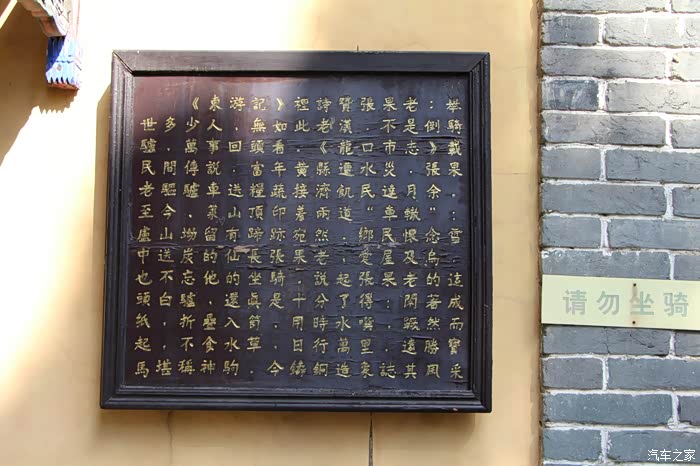 《東游記》裡詩贊張果老：舉
世多少人，無如此老漢，不是倒騎
驢，萬事回頭看。《龍口市志》載：
民間傳說，當年黃縣遭水災，張果
老驅驢車送糧蔬接濟飢民達月余。
至今，萊山頂印著兩道“車轍”；
盧山坳留有蹄跡宛然。鄉民懷念雪
中送炭的仙長張果老，愛屋及烏，
也不忘他的坐騎；說起張果老的這
頭白驢，還真是十分了得，閑著成
紙，折疊入筒，用時噀水，然而
起，不食草，日行萬里，遠勝寶
馬，堪稱神駒，今鑄銅造象，誌其風采
请勿坐骑
汽车之家